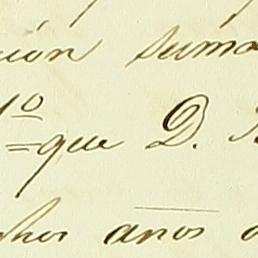 ción suma
1º = que D.
chos años